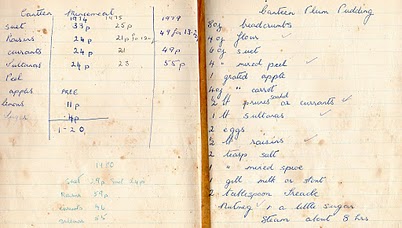 Canteen Mincemeat
1974 1975 1979
Suet 33p 25p
Raisins 24p 21p for 13 49 for 13.2
currants 24p 21 49p
Sultanas 24p 23 55p
Peel
apples FREE
lemons 11p
Sugar 4p
1-20
1980
Suet 29p Suet 24p
Raisins 59p
Currants 46
Sultanas 55
Canteen Plum Pudding
8 oz breadcrumbs
4 oz flour
6 oz suet
4 - mixed peel
1 grated apple
4 oz " carrot
1/2 lt prunes soaked or currants
1 lt sultanas
2 eggs
1/2 lt raisins
2 teasp salt
" mixed spice
gill milk or stout
2 tablespoon Treacle
Nutmeg + a little sugar
Steam about 8 hrs